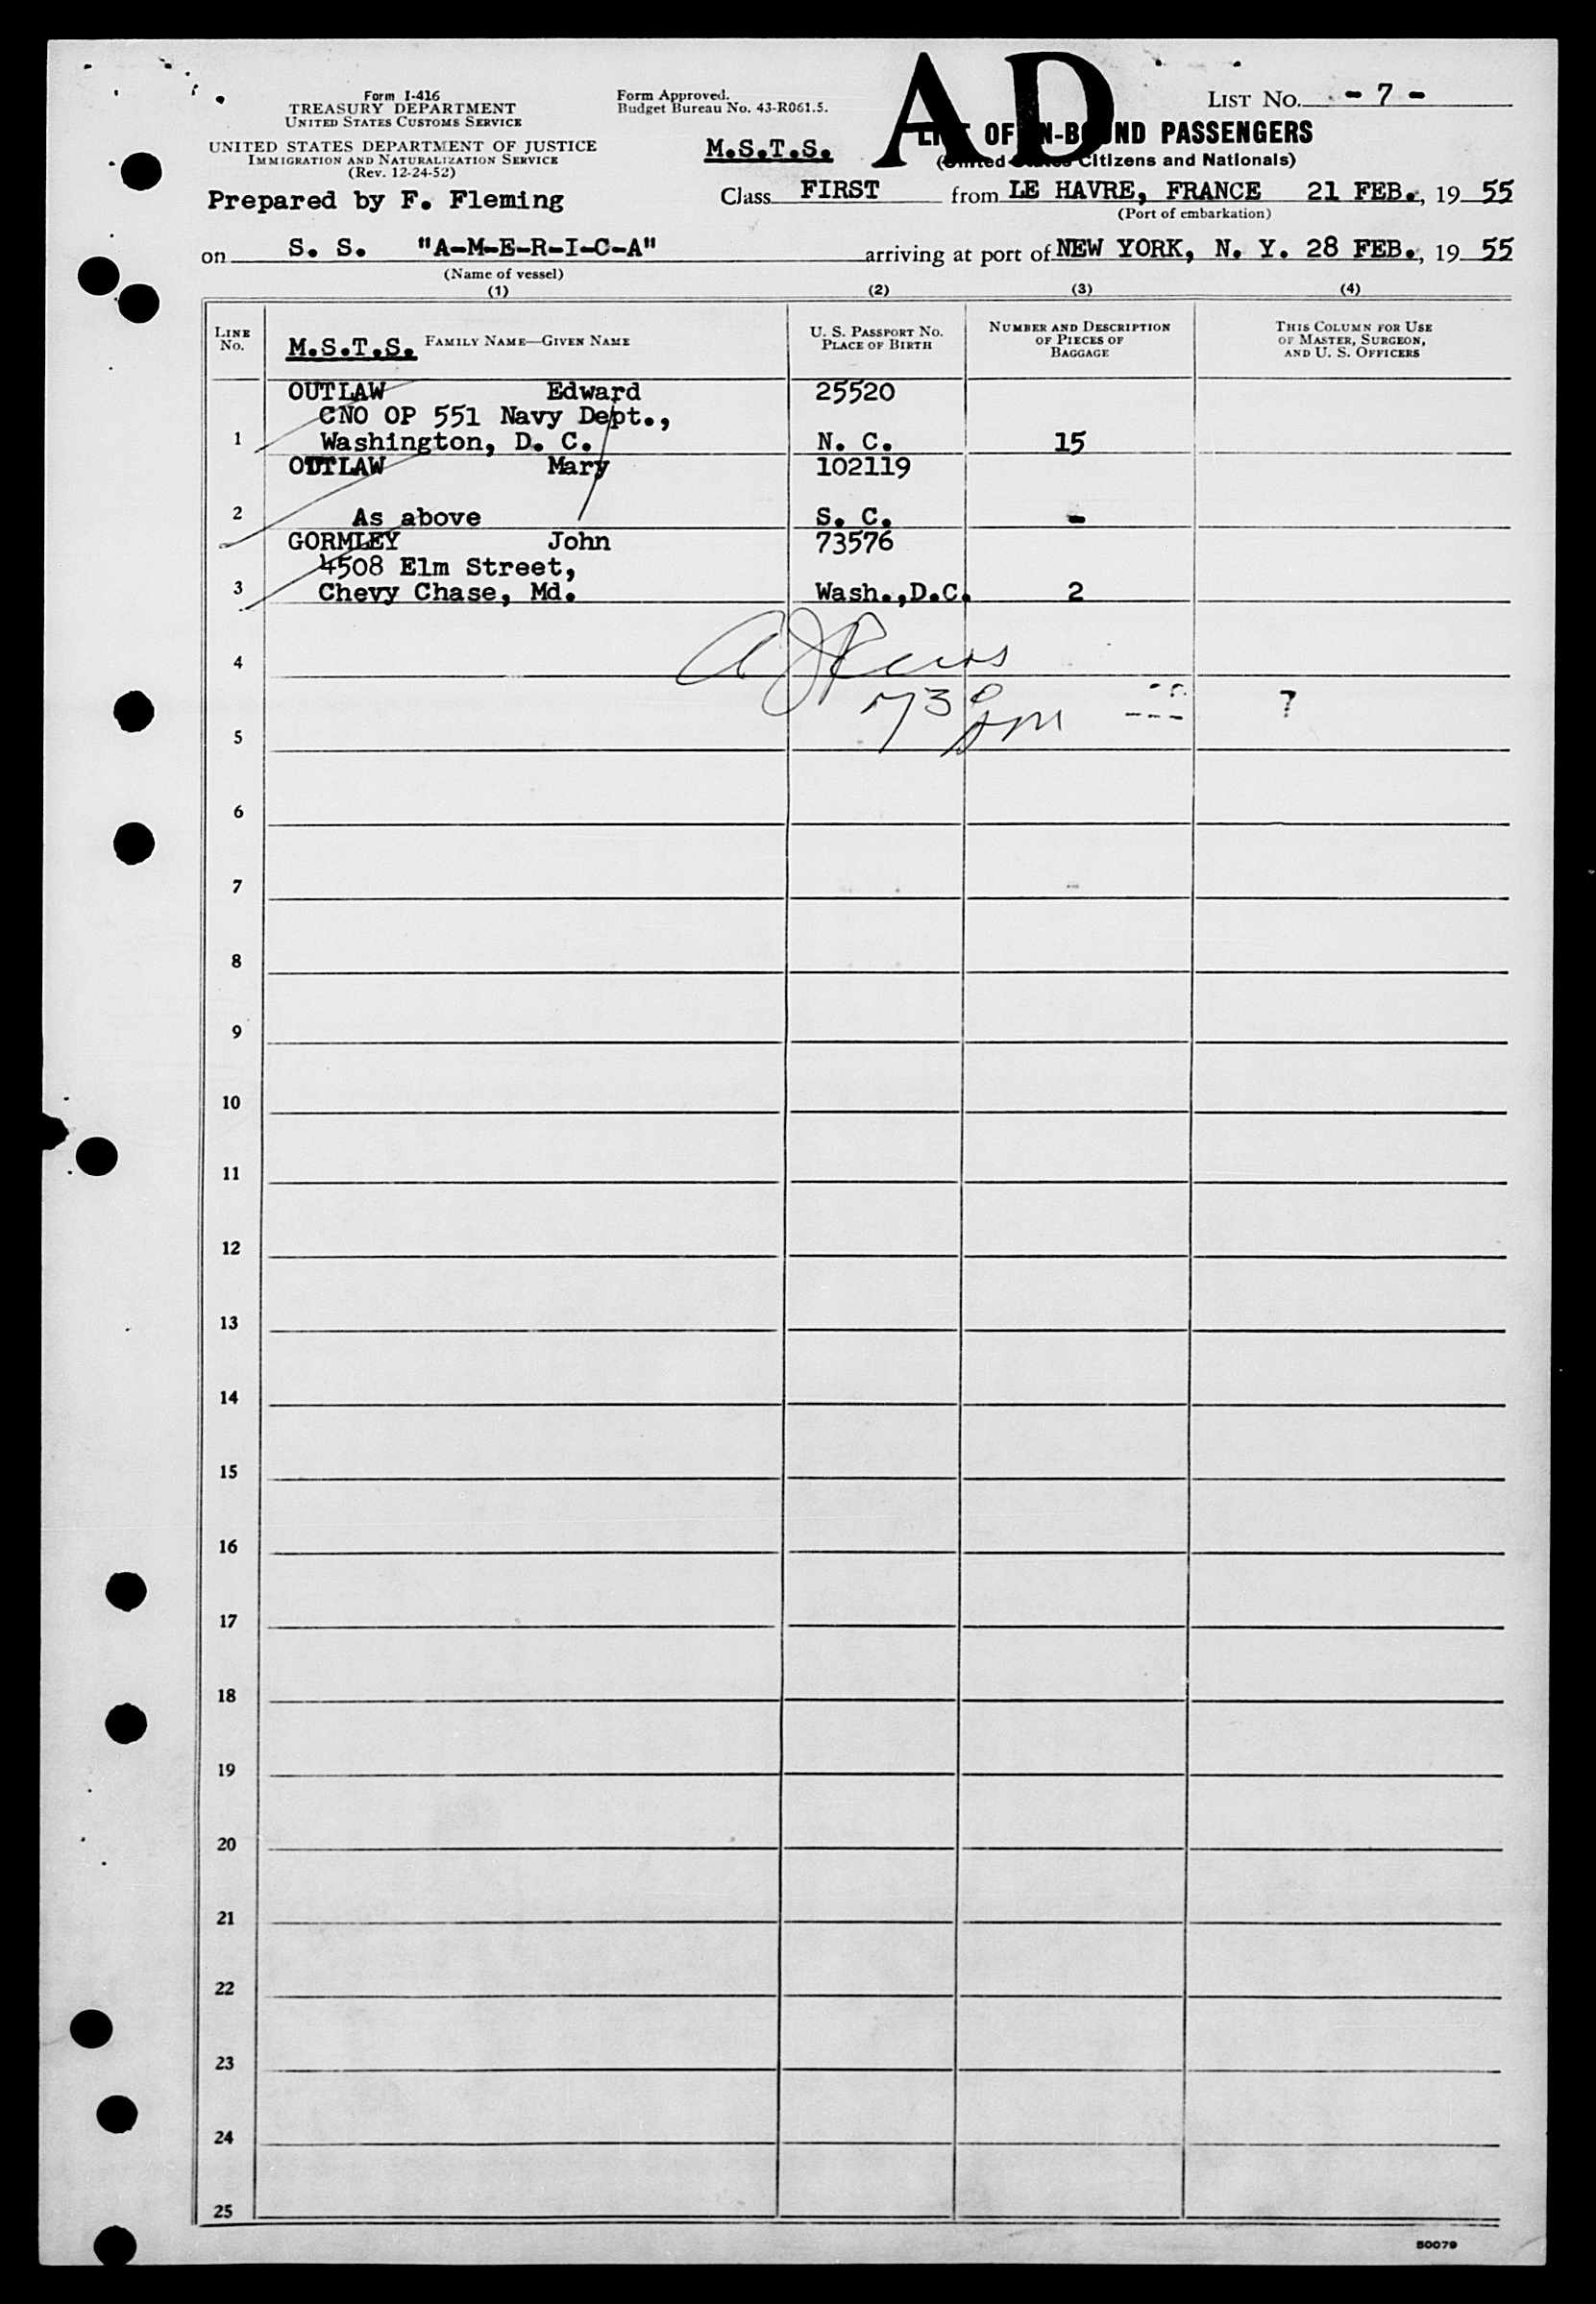 AD
Form I-416
TREASURY DEPARTMENT
UNITED STATES CUSTOMS SERVICE
UNITED STATES DEPARTMENT OF JUSTICE
IMMIGRATION AND NATURALIZATION SERVICE
(Rev. 12-24-52)
Form Approved.
Budget Bureau No. 43-R061.5.
LIST NO. - 7 -
M.S.T.S.
LIST OF IN-BOUND PASSENGERS
(United States Citizens and Nationals)
Prepared by F. Fleming
Class FIRST from LE HAVRE, FRANCE 21 FEB., 19 55
(Port of embarkation)
on S. S. "A-M-E-R-I-C-A" arriving at port of NEW YORK, N. Y. 28 FEB., 19 55
(Name of vessel)
(1) (2) (3) (4)
LINE No.
M.S.T.S. FAMILY NAME—GIVEN NAME
U. S. PASSPORT NO.
PLACE OF BIRTH
NUMBER AND DESCRIPTION
OF PIECES OF
BAGGAGE
THIS COLUMN FOR USE
OF MASTER, SURGEON,
AND U. S. OFFICERS
OUTLAW Edward 25520
CNO OP 551 Navy Dept.,
1 Washington, D. C. N. C. 15
OUTLAW Mary 102119
2 As above S. C. -
GORMLEY John 73576
4508 Elm Street,
3 Chevy Chase, Md. Wash.,D.C. 2
4
5
6
7
8
9
10
11
12
13
14
15
16
17
18
19
20
21
22
23
24
25
50079